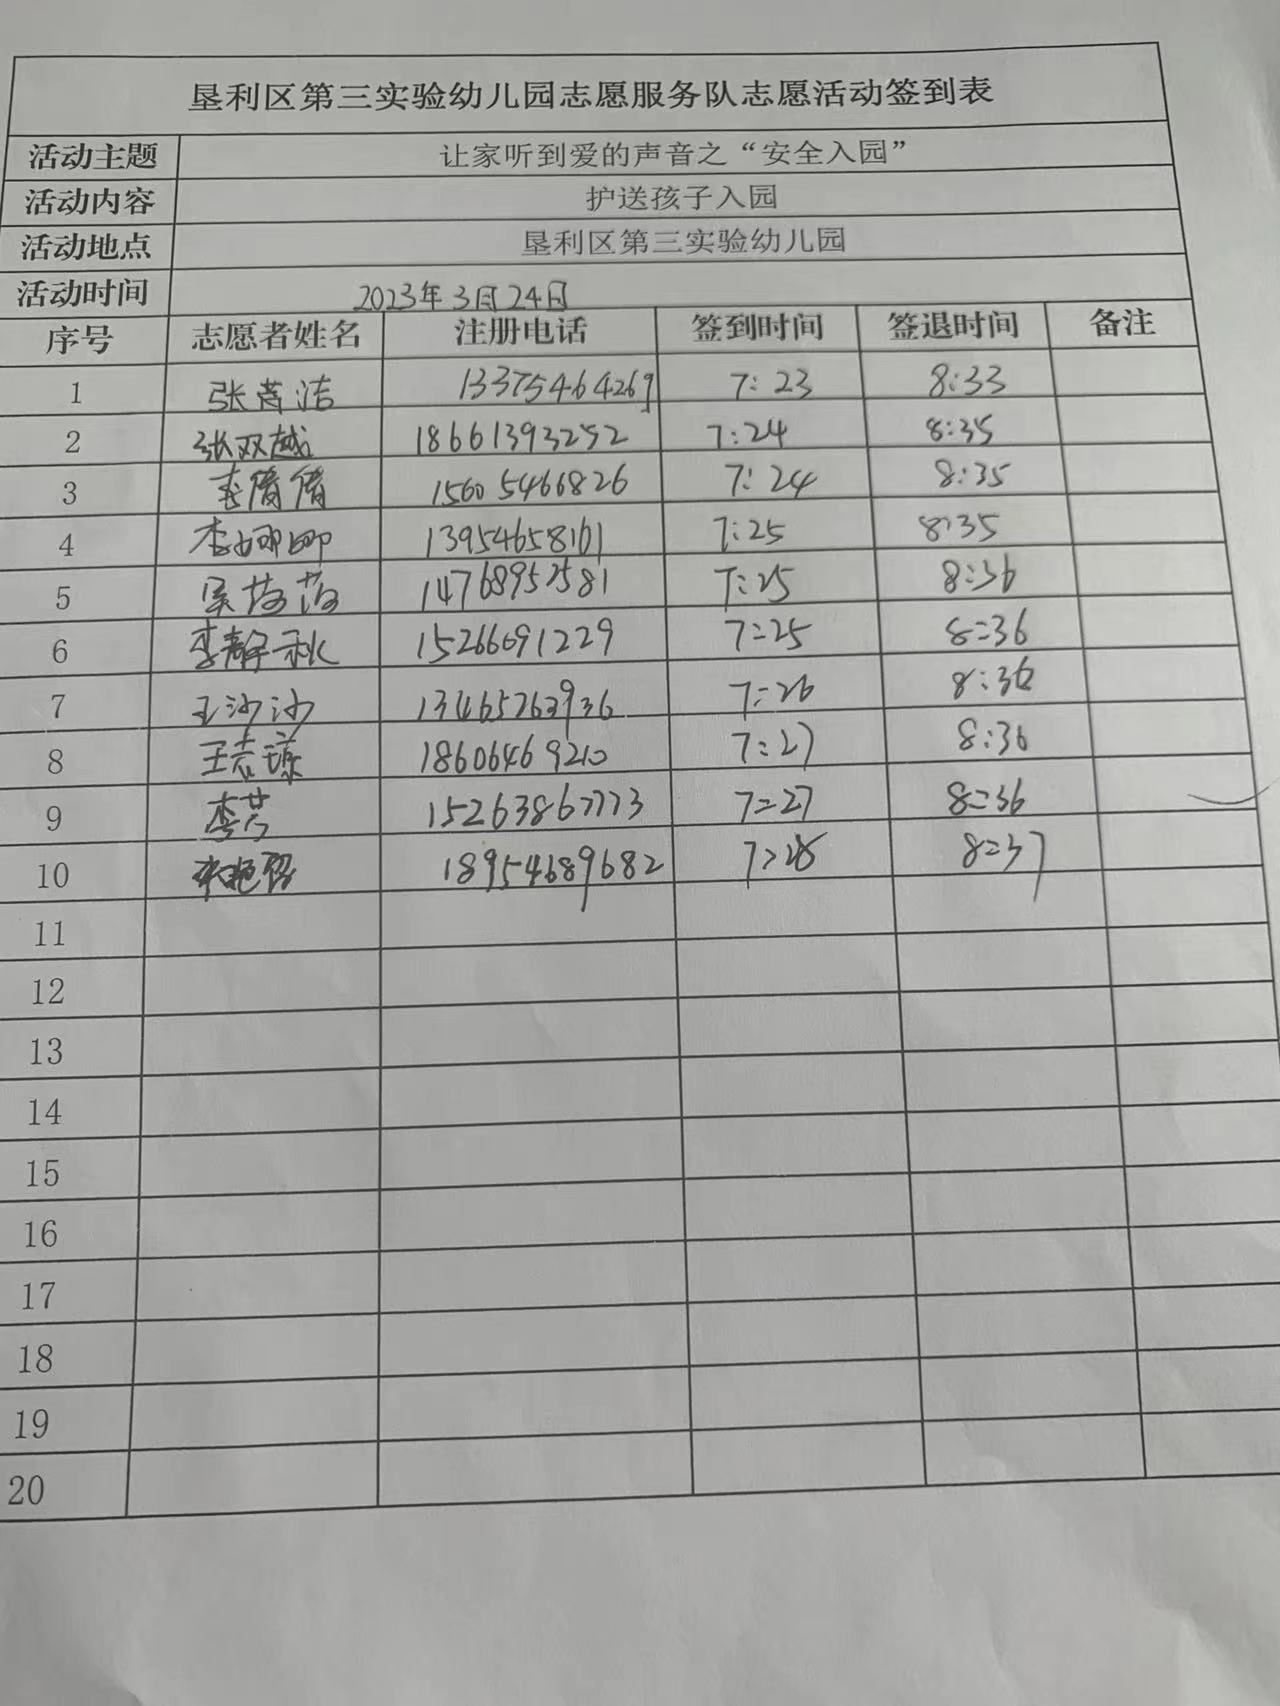 垦利区第三实验幼儿园志愿服务队志愿活动签到表
活动主题 让家听到爱的声音之“安全入园”
活动内容 护送孩子入园
活动地点 垦利区第三实验幼儿园
活动时间 2023年3月24日
序号 志愿者姓名 注册电话 签到时间 签退时间 备注
1 13375464269 7:23 8:33
2 张双越 18661393252 7:24 8:35
3 李倩倩 15605466826 7:24 8:35
4 李娜娜 13954658161 7:25 8:35
5 14768952581 7:25 8:36
6 李静秋 15266691229 7:25 8:36
7 王沙沙 13465263936 7:26 8:36
8 王志琼 18606469210 7:27 8:36
9 李芳 15263867773 7:27 8:36
10 18954689682 7:28 8:37
11
12
13
14
15
16
17
18
19
20